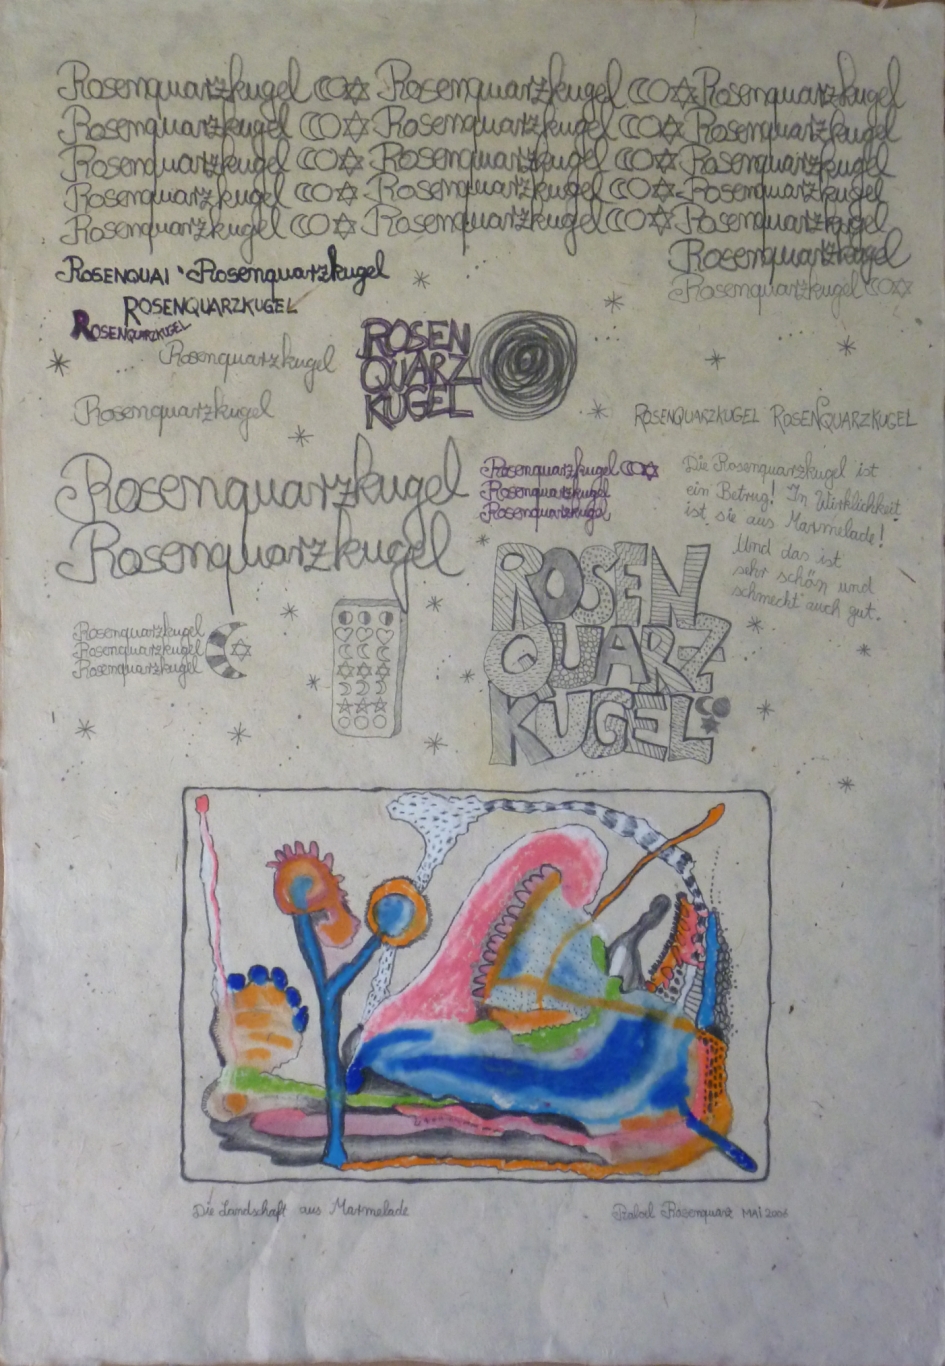 Rosenquarzkugel Rosenquarzkugel Rosenquarzkugel
Rosenquarzkugel Rosenquarzkugel Rosenquarzkugel
Rosenquarzkugel Rosenquarzkugel Rosenquarzkugel
Rosenquarzkugel Rosenquarzkugel Rosenquarzkugel
Rosenquarzkugel Rosenquarzkugel Rosenquarzkugel
Rosenquarzkugel
ROSENQUAI Rosenquarzkugel
Rosenquarzkugel
ROSENQUARZKUGEL
ROSENQUARZKUGEL
Rosenquarzkugel
ROSEN
QUARZ
KUGEL
Rosenquarzkugel
ROSENQUARZKUGEL ROSENQUARZKUGEL
Rosenquarzkugel
Rosenquarzkugel
Rosenquarzkugel
Rosenquarzkugel
Rosenquarzkugel
Die Rosenquarzkugel ist
ein Betrug! In Wirklichkeit
ist sie aus Marmelade!
Und das ist
sehr schön und
schmeckt auch gut.
ROSEN
QUARZ
KUGEL
Rosenquarzkugel
Rosenquarzkugel
Rosenquarzkugel
Die Landschaft aus Marmelade
Rosenquarz MAI 2006